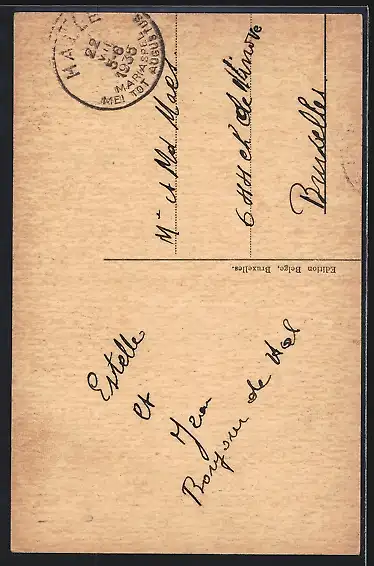 HALLE
22
VII
5-6
1935
MARIASPELTUS
MEI TOT AUGUSTUS
Mr et Md Maes
6 de
Bruxelles
Edition Belge, Bruxelles.
Estelle
et
Jean
Bonjour de Hal